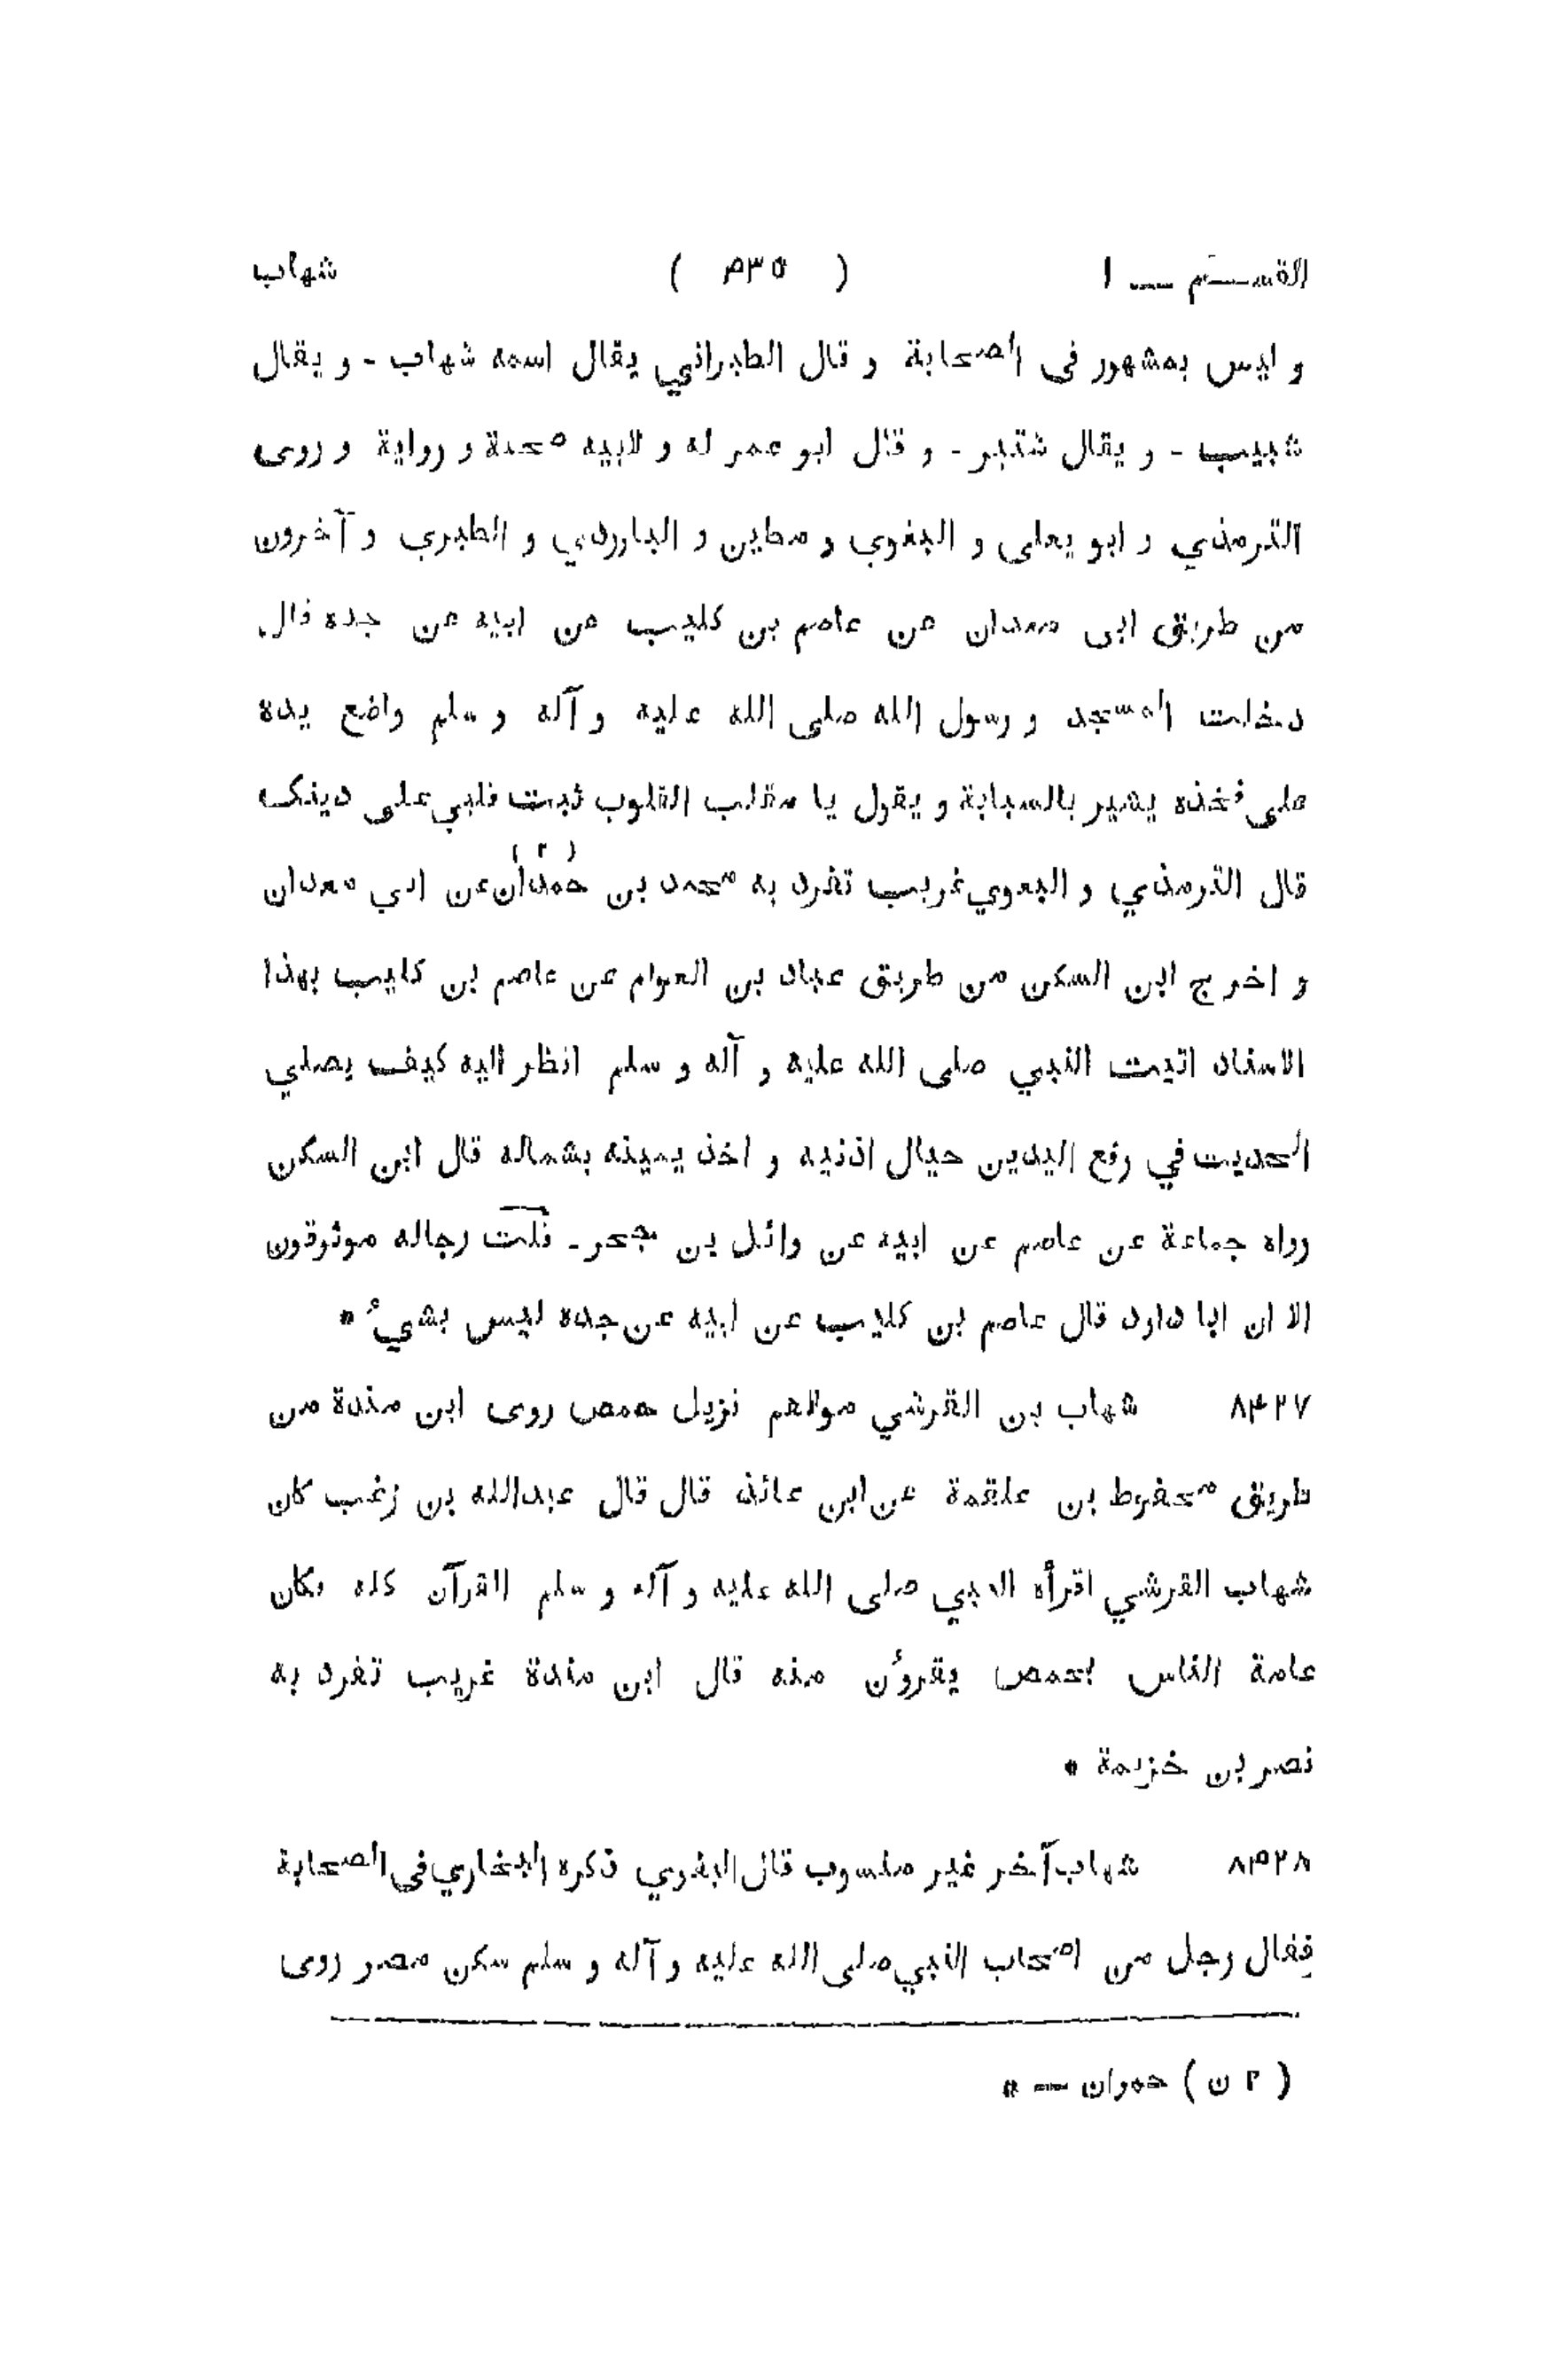 القسم — ١ ( ٥٣٤ ) شهاب
و ليس بمشهور فى الصحابة و قال الطبراني يقال اسمه شهاب - و يقال
شبيب - و يقال شتير - و قال ابو عمر له و لابيه صحبة و رواية و روى
الترمذي و ابو يعلى و البغوي و مطين و الباوردي و الطبري و آخرون
من طريق ابى معدان عن عاصم بن كليب عن ابيه عن جده قال
دخلت المسجد و رسول الله صلى الله عليه و آله و سلم واضع يده
على فخذه يشير بالسبابة و يقول يا مقلب القلوب ثبت قلبي على دينك
قال الترمذي و البغوي غريب تفرد به محمد بن حمدان (٢) عن ابي معدان
و اخرج ابن السكن من طريق عباد بن العوام عن عاصم بن كليب بهذا
الاسناد اتيت النبي صلى الله عليه و آله و سلم انظر اليه كيف يصلي
الحديث في رفع اليدين حيال اذنيه و اخذ يمينه بشماله قال ابن السكن
رواه جماعة عن عاصم عن ابيه عن وائل بن حجر - قلت رجاله موثوقون
الا ان ابا داود قال عاصم بن كليب عن ابيه عن جده ليس بشيء *
٨٤٢٧ شهاب بن القرشي مولاهم نزيل حمص روى ابن مندة من
طريق محفوظ بن علقمة عن ابن عائذ قال قال عبدالله بن زغب كان
شهاب القرشي اقرأه النبي صلى الله عليه و آله و سلم القرآن كله فكان
عامة الناس بحمص يقرؤن منه قال ابن مندة غريب تفرد به
نصر بن خزيمة *
٨٤٢٨ شهاب آخر غير منسوب قال البغوي ذكره البخاري فى الصحابة
فقال رجل من اصحاب النبي صلى الله عليه و آله و سلم سكن مصر روى
( ٢ ن ) حمران — *